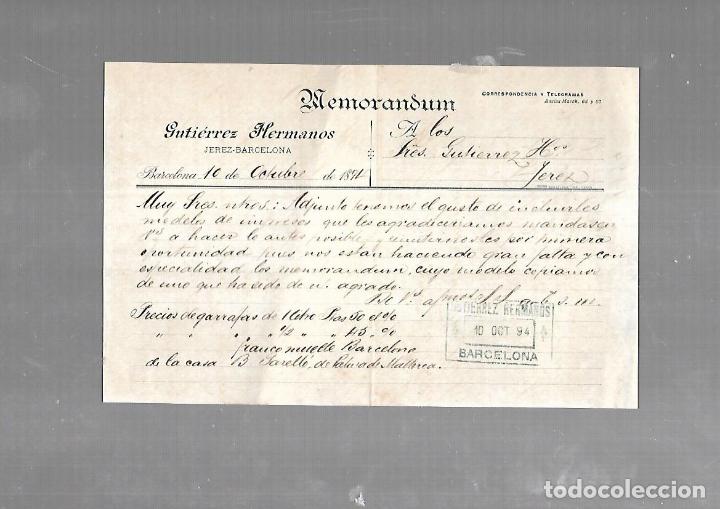 Memorandum
CORRESPONDENCIA Y TELEGRAMAS
Gutiérrez Hermanos
JEREZ-BARCELONA
Barcelona 10 de Octubre de 1894
A los
Sres. Gutierrez Hos
Jerez
Muy Sres. ntros.: Adjunto tenemos el gusto de incluirles
modelos de impresos que les agradeceriamos mandasen
Vds a hacer lo antes posible y remitirnosles por primera
oportunidad pues nos estan haciendo gran falta y con
especialidad los memorandum, cuyo modelo copiamos
de uno que ha sido de n. agrado.
De Vs. afmos S.S. q. b. s. m.
Precios de garrafas de 1 litro Ptas 50 el %
" " " " 1/2 " " 45 " %
franco muelle Barcelona
de la casa B. de Palma de Mallorca.
GUTIERREZ HERMANOS
10 OCT 94
BARCELONA
todocoleccion